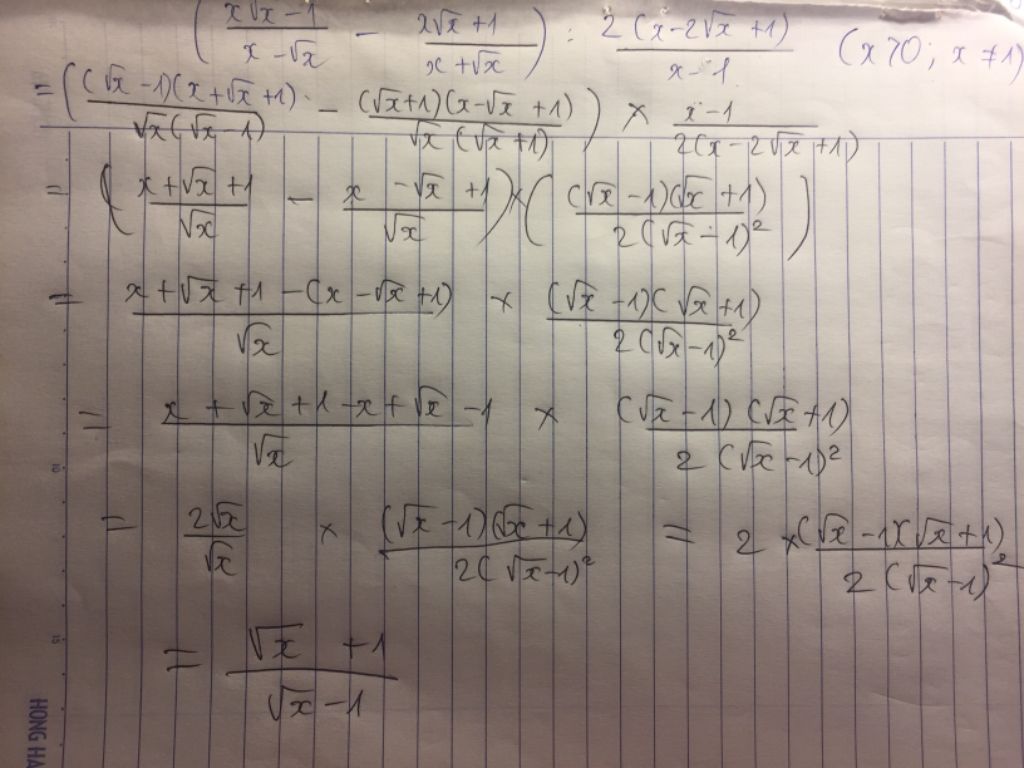 ( (x√x - 1)/(x - √x) - (x√x + 1)/(x + √x) ) : 2(x - 2√x + 1)/(x - 1) (x > 0; x ≠ 1)
= ( (√x - 1)(x + √x + 1)/√x(√x - 1) - (√x + 1)(x - √x + 1)/√x(√x + 1) ) × (x - 1)/2(x - 2√x + 1)
= ( (x + √x + 1)/√x - (x - √x + 1)/√x ) × ( (√x - 1)(√x + 1)/2(√x - 1)² )
= (x + √x + 1 - (x - √x + 1))/√x × (√x - 1)(√x + 1)/2(√x - 1)²
= (x + √x + 1 - x + √x - 1)/√x × (√x - 1)(√x + 1)/2(√x - 1)²
= 2√x/√x × (√x - 1)(√x + 1)/2(√x - 1)² = 2 × (√x - 1)(√x + 1)/2(√x - 1)²
= (√x + 1)/(√x - 1)
HONG HA